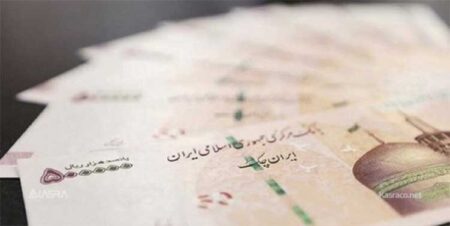 بانک مرکزی جمهوری اسلامی ایران
ایران چک
پانصد هزار ریال
۵۰۰۰۰۰
KASRA
Kasraco.net